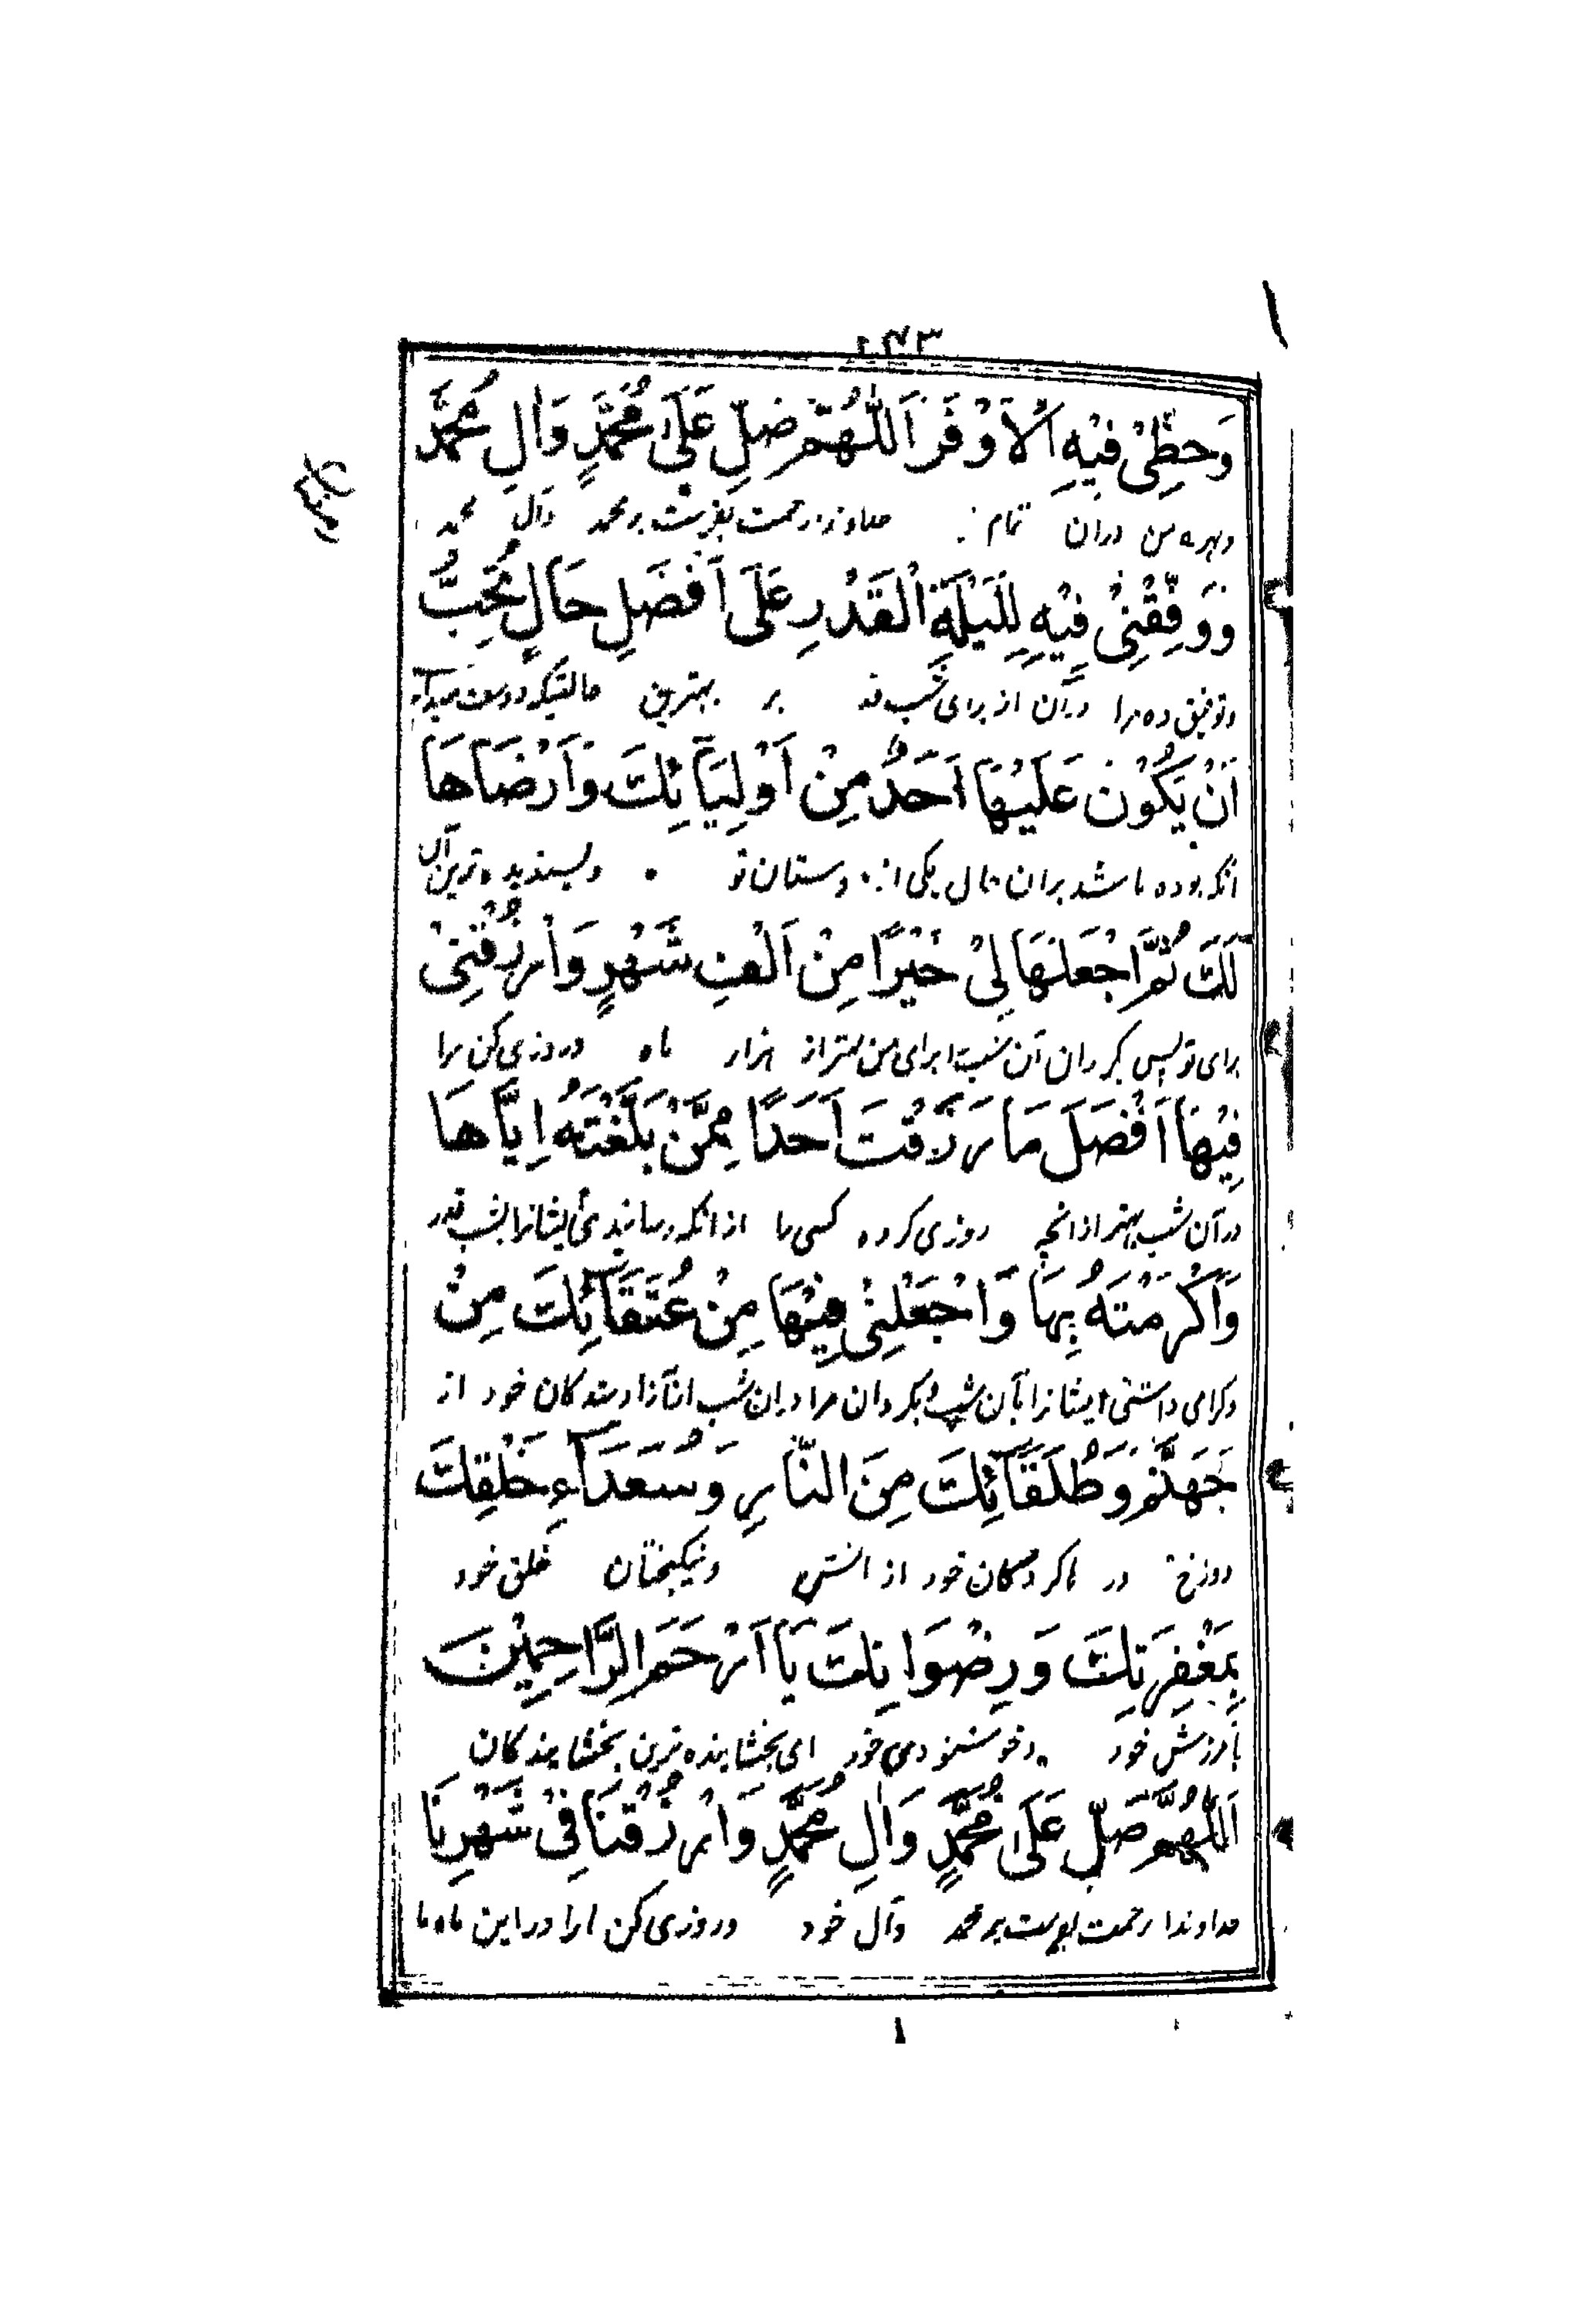 وَحَظِّيْ فِيْهِ الْاَوْفَرَ اَللّٰهُمَّ صَلِّ عَلٰى مُحَمَّدٍ وَاٰلِ مُحَمَّدٍ
وبهره من دران تمام رحمت بفرست بر محمد وآل محمد
وَوَفِّقْنِيْ فِيْهِ لِلَيْلَةِ الْقَدْرِ عَلٰى اَفْضَلِ حَالٍ تُحِبُّ
وتوفیق ده مرا درآن از برای شب قد بر بهترین حالتیکه دوست میداری
اَنْ يَكُوْنَ عَلَيْهَا اَحَدٌ مِنْ اَوْلِيَآئِكَ وَاَرْضَاهَا
انکه بوده باشد بران حال یکی از دوستان تو وپسندیده ترین آن
لَكَ ثُمَّ اجْعَلْهَا لِيْ خَيْرًا مِنْ اَلْفِ شَهْرٍ وَارْزُقْنِيْ
برای تو پس بگردان آن شب را برای من بهتر از هزار ماه وروزی کن مرا
فِيْهَا اَفْضَلَ مَا رَزَقْتَ اَحَدًا مِمَّنْ بَلَّغْتَهُ اِيَّاهَا
درآن شب بهتر ازانچه روزی کرده کسی را ازانکه رسانیدی ایشانرا بشب قدر
وَاَكْرَمْتَهُ بِهَا وَاجْعَلْنِيْ فِيْهَا مِنْ عُتَقَآئِكَ مِنْ
وکرامی داشتی ایشانرا بآن شب وبگردان مرا دران شب از آزادشدکان خود از
جَهَنَّمَ وَطُلَقَآئِكَ مِنَ النَّارِ وَسُعَدَآءِ خَلْقِكَ
دوزخ ور هاکردکان خود از اتش ونیکبختان خلق خود
بِمَغْفِرَتِكَ وَرِضْوَانِكَ يَا اَرْحَمَ الرَّاحِمِيْنَ
بامرزش خود وخوشنودی خود ای بخشاینده ترین بخشایندکان
اَللّٰهُمَّ صَلِّ عَلٰى مُحَمَّدٍ وَاٰلِ مُحَمَّدٍ وَارْزُقْنَا فِيْ شَهْرِنَا
خداوندا رحمت بفرست بر محمد وآل خود وروزی کن مارا دراین ماه ما